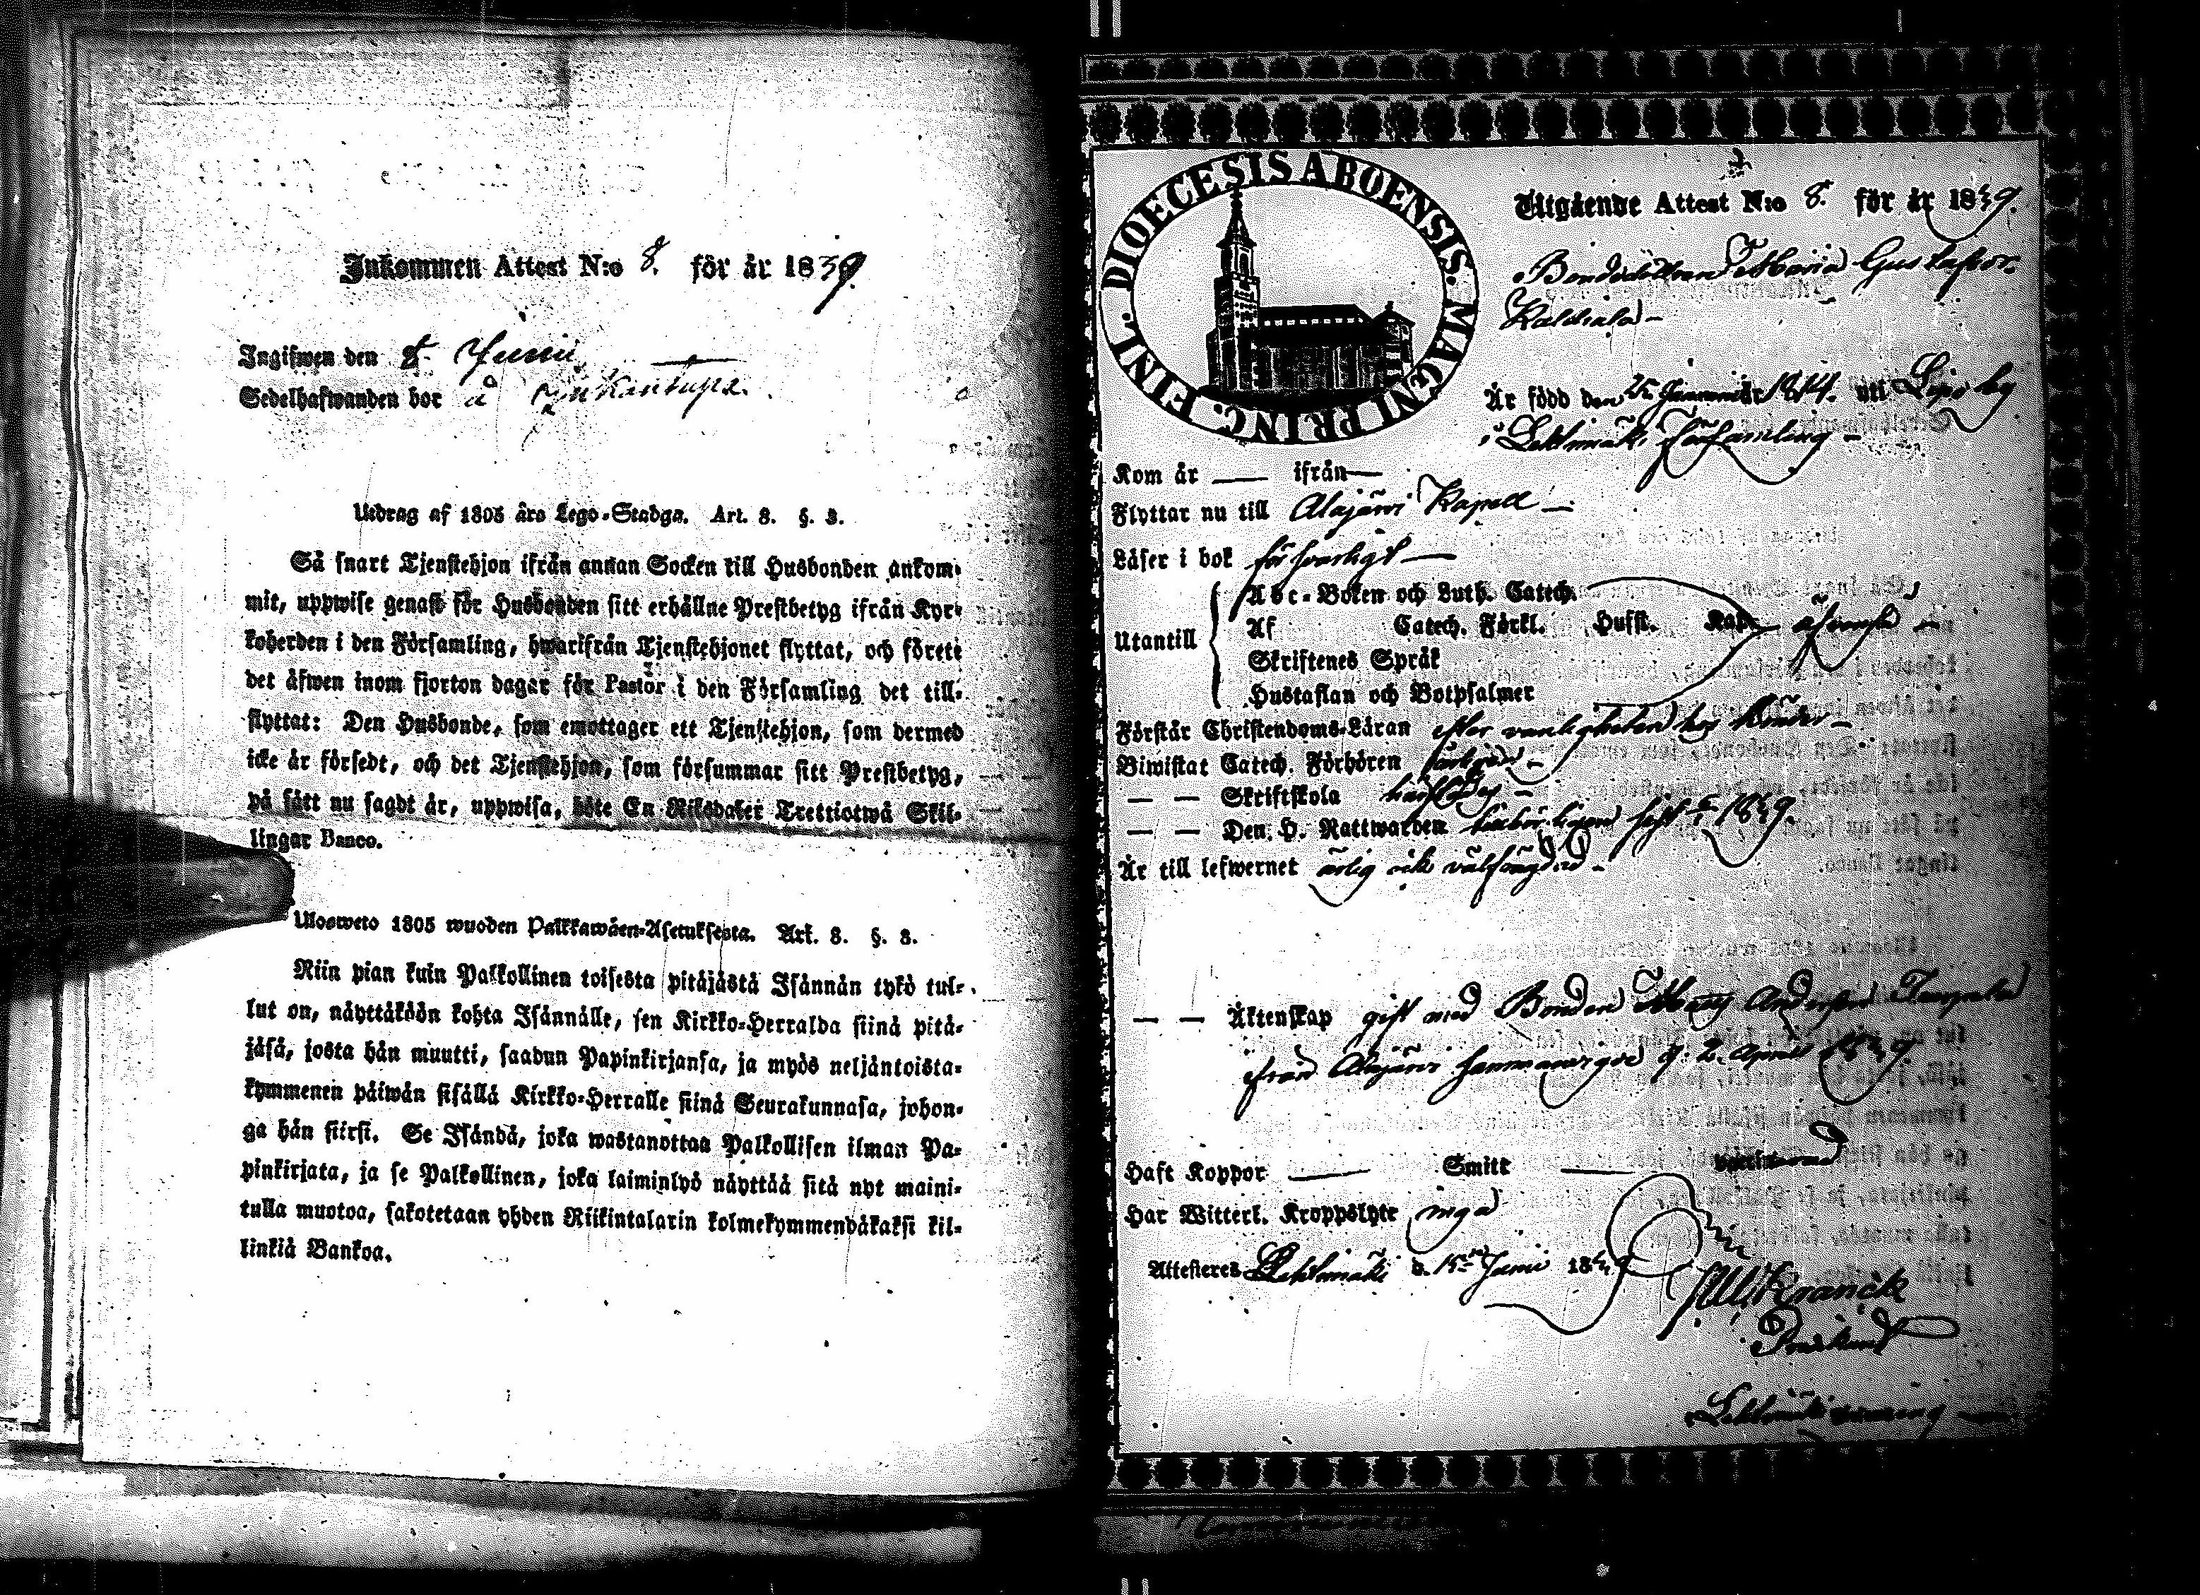 Inkommen Attest N:o 8. för år 1839.
Ingifwen den 8. Junii
Sedelhafwanden bor å
Utdrag af 1805 års Lego-Stadga. Art. 8. §. 3.
Så snart Tjenstehjon ifrån annan Socken till Husbonden ankom-
mit, uppwise genast för Husbonden sitt erhållne Prestbetyg ifrån Kyr-
koherden i den Församling, hwarifrån Tjenstehjonet flyttat, och förete
det äfwen inom fjorton dagar för Pastor i den Församling det till-
flyttat: Den Husbonde, som emottager ett Tjenstehjon, som dermed
icke är försedt, och det Tjenstehjon, som försummar sitt Prestbetyg,
på sätt nu sagdt är, uppwisa, böte En Riksdaler Trettiotwå Skil-
lingar Banco.
Ulosweto 1805 wuoden Palkkawäen-Asetuksesta. Art. 8. §. 3.
Niin pian kuin Palkollinen toisesta pitäjästä Isännän tykö tul-
lut on, näyttäköön kohta Isännälle, sen Kirkko-Herralda siinä pitä-
jäsä, josta hän muutti, saadun Papinkirjansa, ja myös neljäntoista-
kymmenen päiwän sisällä Kirkko-Herralle siinä Seurakunnasa, johon-
ga hän siirsi. Se Isändä, joka wastanottaa Palkollisen ilman Pa-
pinkirjata, ja se Palkollinen, joka laiminlyö näyttää sitä nyt maini-
tulla muotoa, sakotetaan yhden Riikintalarin kolmekymmendäkaksi kil-
linkiä Bankoa.
DIOECESIS ABOENSIS. MAGNI PRINC. FINL.
Utgående Attest N:o 8. för år 1839.
Bondedottren Maria Gustafsdr.
Är född den 25 Januarii år 1814. uti by
i Lehtimäki Församling -
Kom år — ifrån —
Flyttar nu till Alajärvi Kapell -
Läser i bok försvarligt —
Utantill
Abc-Boken och Luth. Catech.
Af Catech. Förkl. Hufst. Kap. äfvenså -
Skriftenes Språk
Hustaflan och Botpsalmer
Förstår Christendoms-Läran efter vanligheten hos Bönder -
Biwistat Catech. Förhören årligen -
— — Skriftskola
— — Den H. Nattwarden sist 1839.
Är till lefwernet ärlig och välfrägdad -
— — Äktenskap gift med Bonden Matts Andersson
från Alajärvi sammanvigde d. 2. April 1839.
Haft Koppor — Smitt — vaccinerad
Har Witterl. Kroppslyte inga
Attesteres Lehtimäki d. 15 Junii 1839
Kranck
Predikant